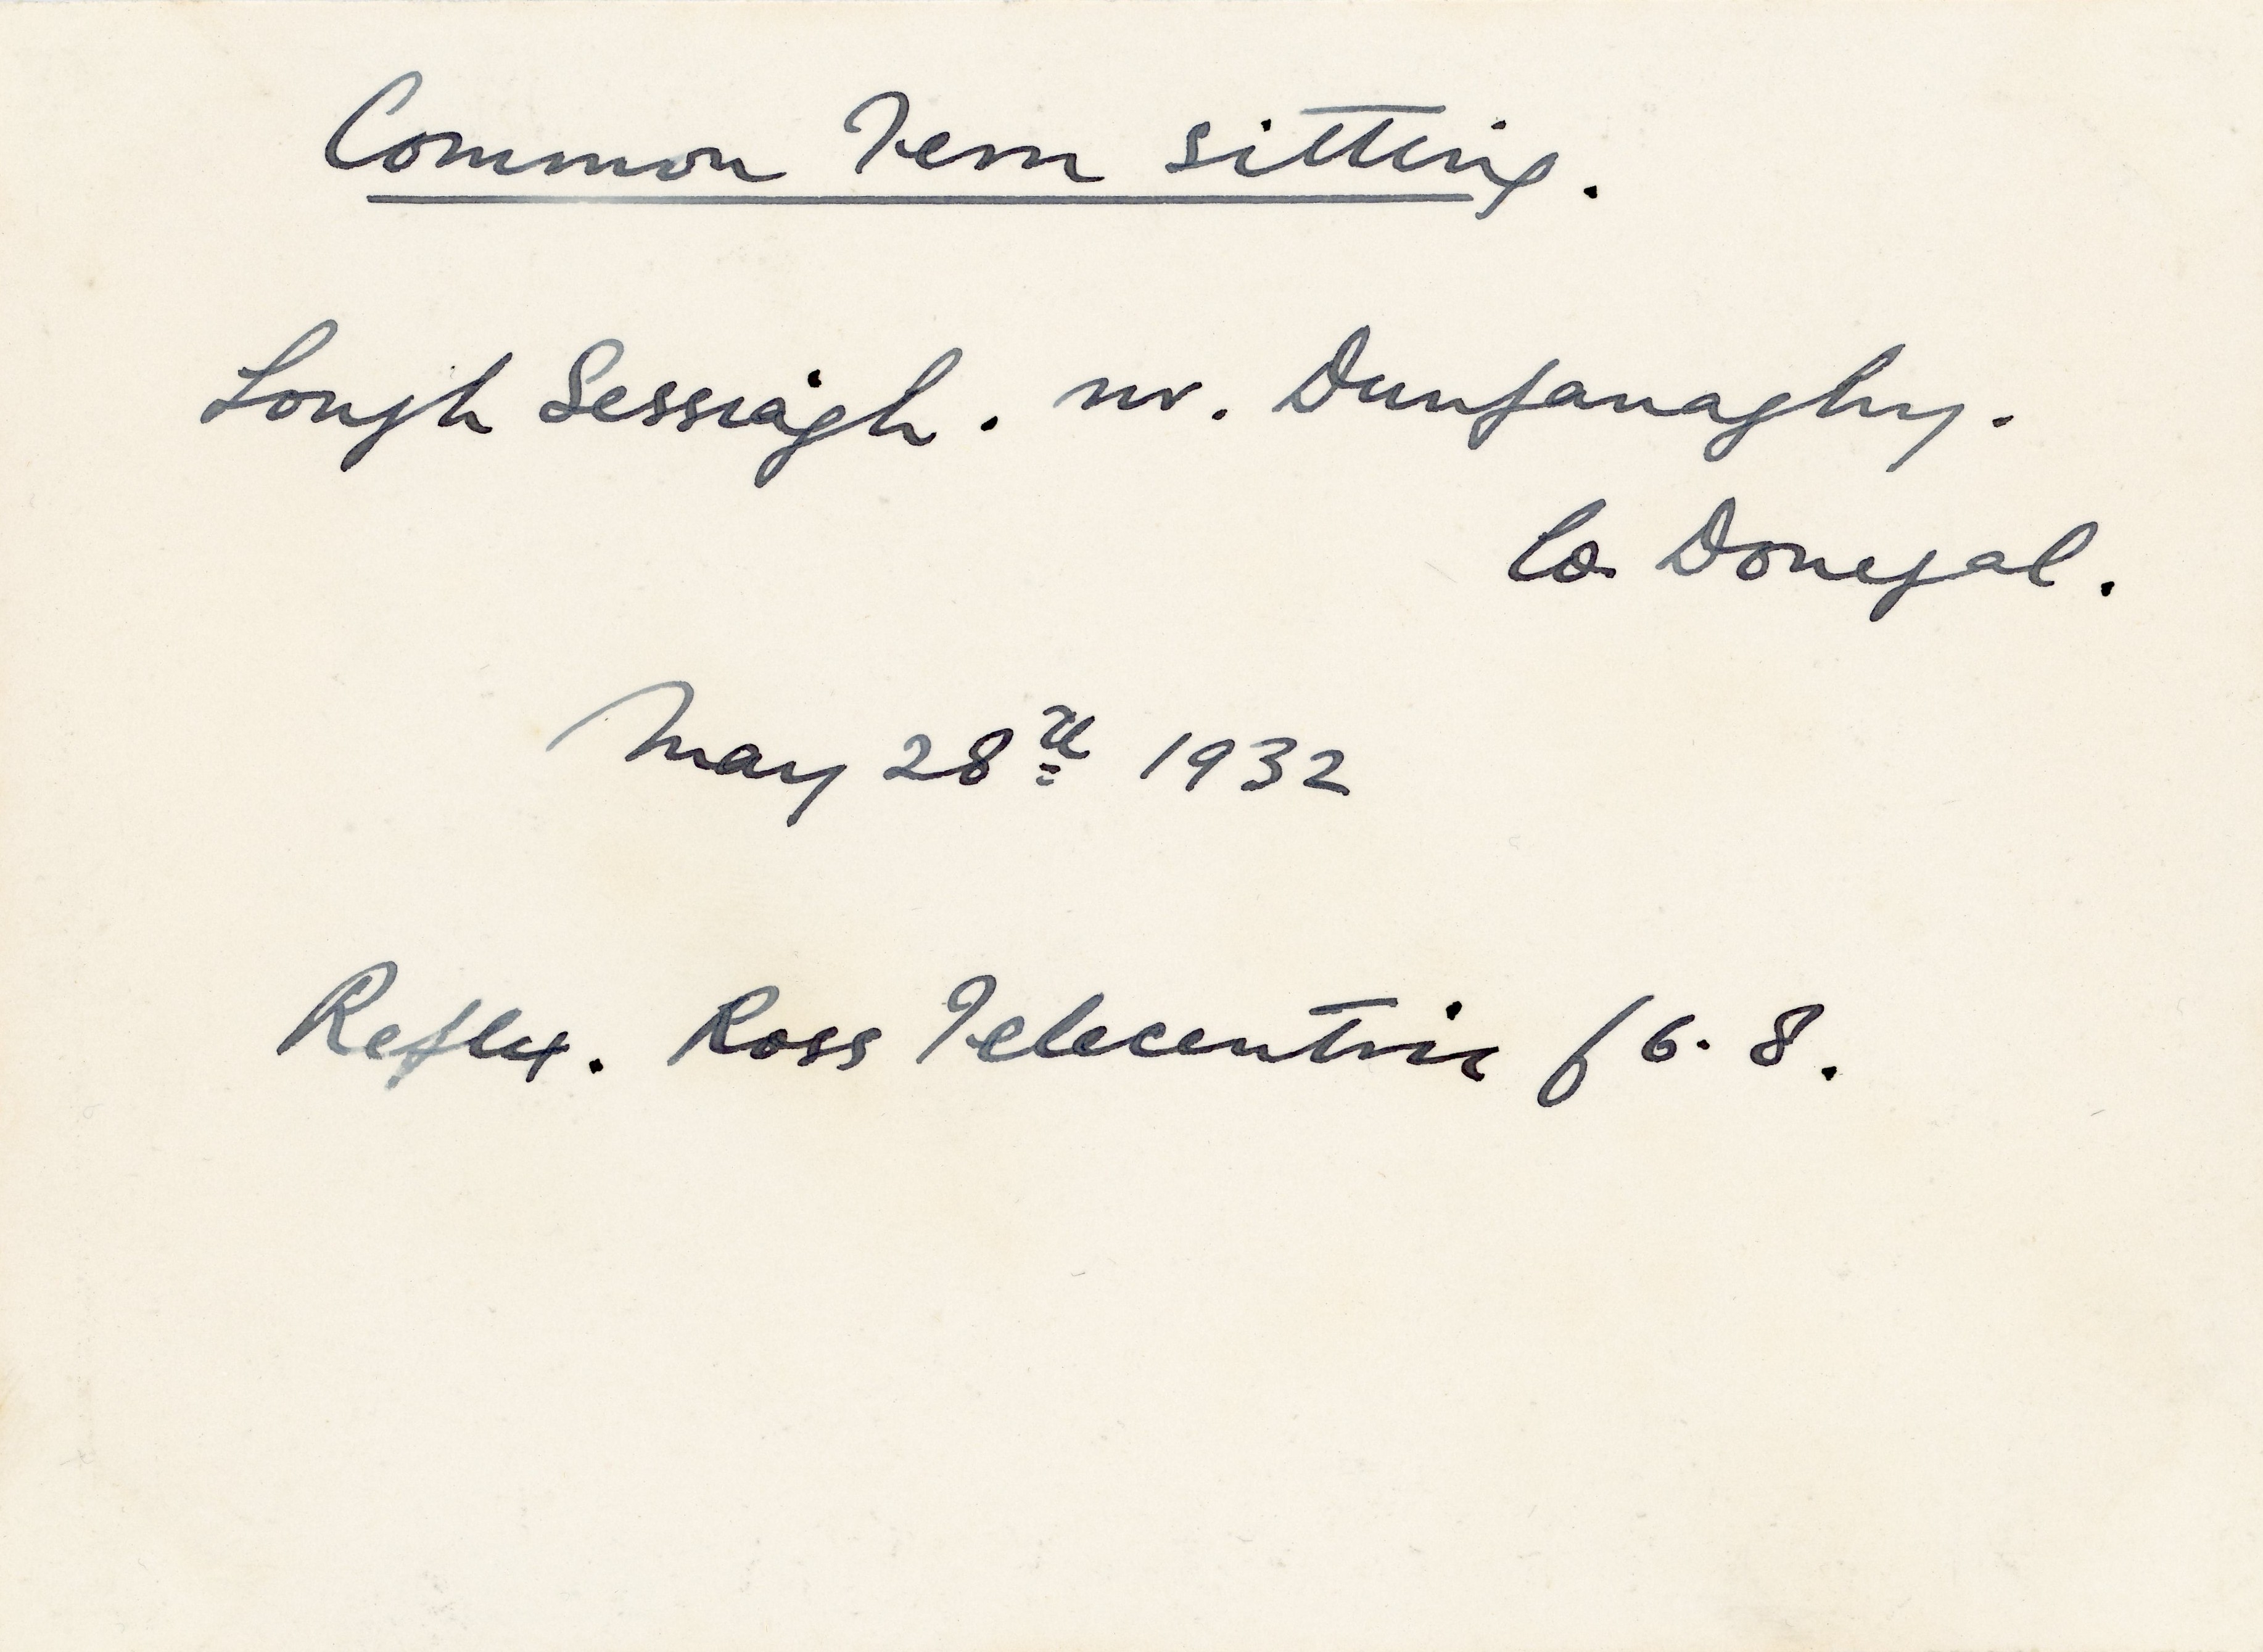 Common Tern sitting.
Lough Sessiagh. nr. Dunfanaghy.
Co. Donegal.
May 28th 1932
Reflex. Ross Telecentric f6.8.